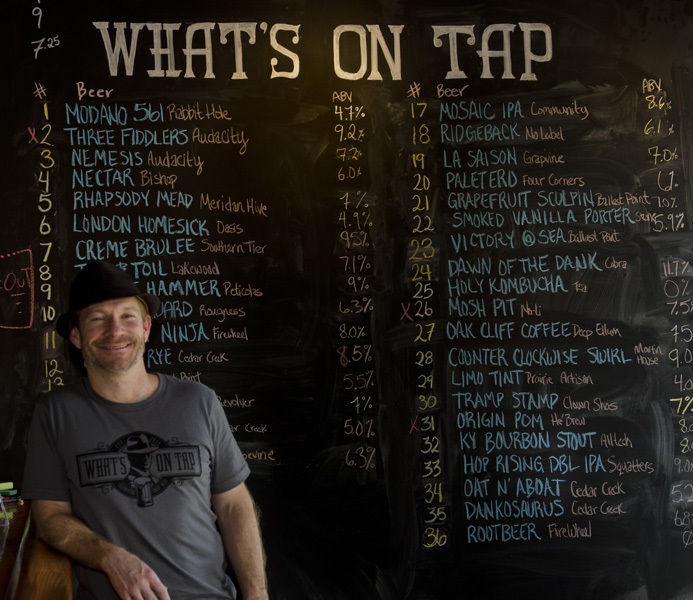 9
7.25
WHAT'S ON TAP
# Beer ABV
1 MODANO 561 Rabbit Hole 4.7%
x 2 THREE FIDDLERS Audacity 9.2%
3 NEMESIS Audacity 7.2%
4 NECTAR Bishop 6.0%
5 RHAPSODY MEAD Meridan Hive
6 LONDON HOMESICK Oasis 4.9%
7 CREME BRULEE Southern Tier
8 TOIL Lakewood 7.1%
9 HAMMER Peticolas 9%
10 6.3%
11 NINJA Firewheel 8.0%
12 RYE Cedar Creek 8.5%
5.5%
evolver 4%
Creek 5.0%
6.3%
OUT
WHAT'S ON TAP
# Beer ABV
17 MOSAIC IPA Community 8.6%
18 RIDGEBACK No Label 6.1
19 LA SAISON Grapevine 7.0%
20 PALETERO Four Corners
21 GRAPEFRUIT SCULPIN Ballast Point 10%
22 SMOKED VANILLA PORTER 5.9%
23 VICTORY @ SEA Ballast Point
24 DAWN OF THE DANK Cobra 11.7%
25 HOLY KOMBUCHA Tea 0%
x 26 MOSH PIT NoLi 7.5
27 OAK CLIFF COFFEE Deep Ellum
28 COUNTER CLOCKWISE SWIRL Martin House 9.0
29 LIMO TINT Prairie Artisan
30 TRAMP STAMP Clown Shoes 7%
x 31 ORIGIN POM He'Brew
32 KY BOURBON STOUT Alltech
33 HOP RISING DBL IPA Squatters
34 OAT N' ABOAT Cedar Creek
35 DANKOSAURUS Cedar Creek
36 ROOTBEER FireWheel